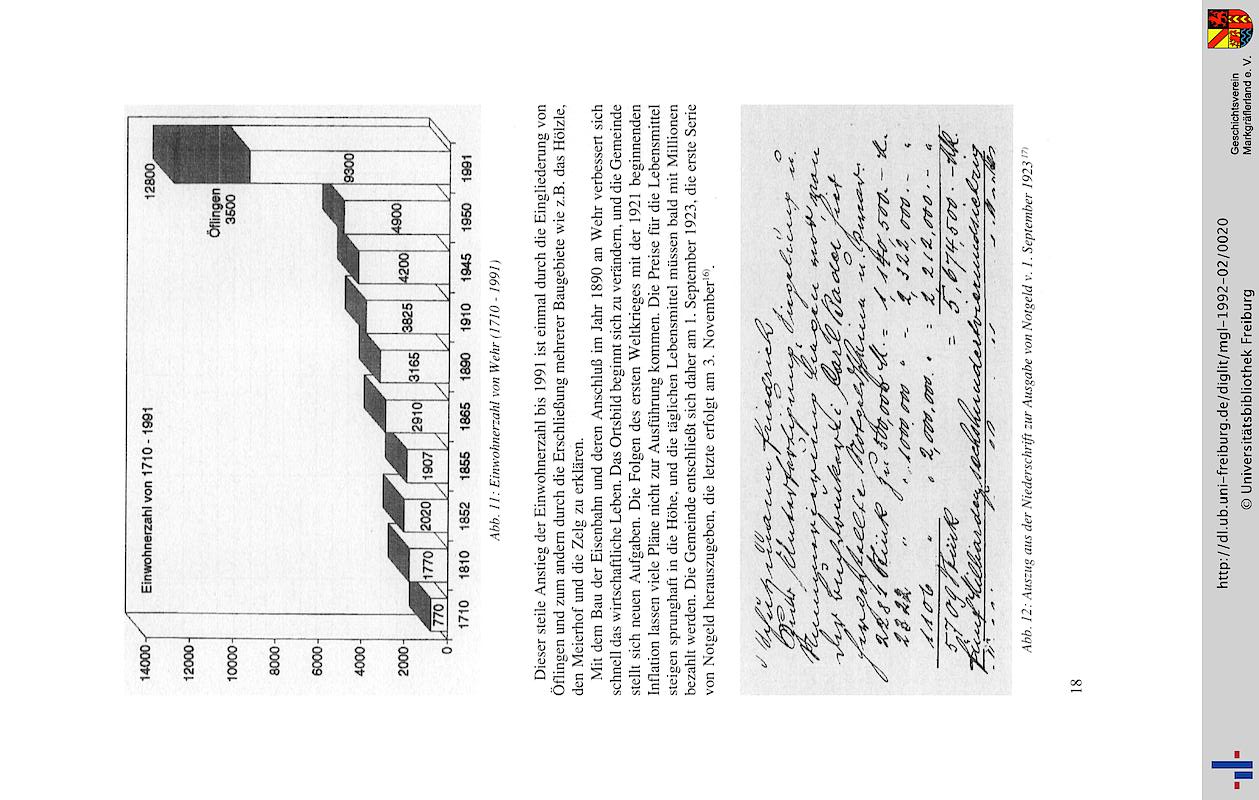 Einwohnerzahl von 1710 - 1991
14000
12000
10000
8000
6000
4000
2000
0
770
1770
2020
1907
2910
3165
3825
4200
4900
9300
Öflingen
3500
12800
1710
1810
1852
1855
1865
1890
1910
1945
1950
1991
Abb. 11: Einwohnerzahl von Wehr (1710 - 1991)
Dieser steile Anstieg der Einwohnerzahl bis 1991 ist einmal durch die Eingliederung von
Öflingen und zum andern durch die Erschließung mehrerer Baugebiete wie z.B. das Hölzle,
den Meierhof und die Zelg zu erklären.
Mit dem Bau der Eisenbahn und deren Anschluß im Jahr 1890 an Wehr verbessert sich
schnell das wirtschaftliche Leben. Das Ortsbild beginnt sich zu verändern, und die Gemeinde
stellt sich neuen Aufgaben. Die Folgen des ersten Weltkrieges mit der 1921 beginnenden
Inflation lassen viele Pläne nicht zur Ausführung kommen. Die Preise für die Lebensmittel
steigen sprunghaft in die Höhe, und die täglichen Lebensmittel müssen bald mit Millionen
bezahlt werden. Die Gemeinde entschließt sich daher am 1. September 1923, die erste Serie
von Notgeld herauszugeben, die letzte erfolgt am 3. November16).
Friedrich
Carl
2281 Stück zu 500,000 M. = 1 140 500 - M.
2322 " " 1000 000 " - 2,322,000.- "
1106 " " 2,000,000. " = 2 212,000.- "
5709 Stück = 5,674,500 - M.
Abb. 12: Auszug aus der Niederschrift zur Ausgabe von Notgeld v. 1. September 1923 17)
18
http://dl.ub.uni-freiburg.de/diglit/mgl-1992-02/0020
© Universitätsbibliothek Freiburg
Geschichtsverein
Markgräflerland e. V.